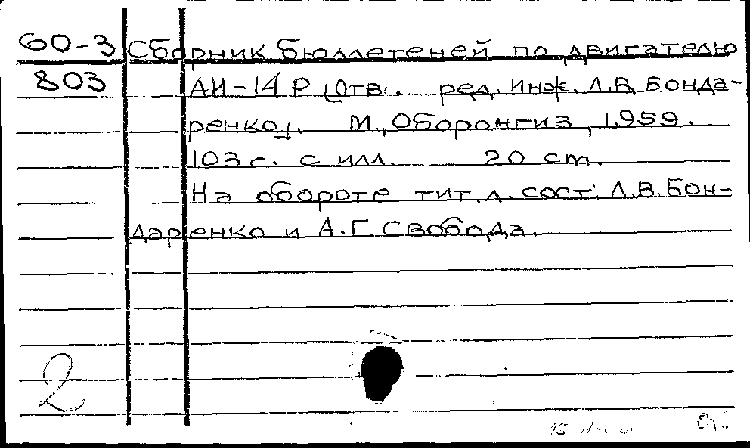 60-3 Сборник бюллетеней по двигателю
803 АИ-14 Р [Отв. ред. инж. Л.В. Бонда-
ренко]. М., Оборонгиз, 1959.
103 с. с илл. 20 см.
На обороте тит. л. сост: Л.В. Бон-
даренко и А.Г. Свобода.
2